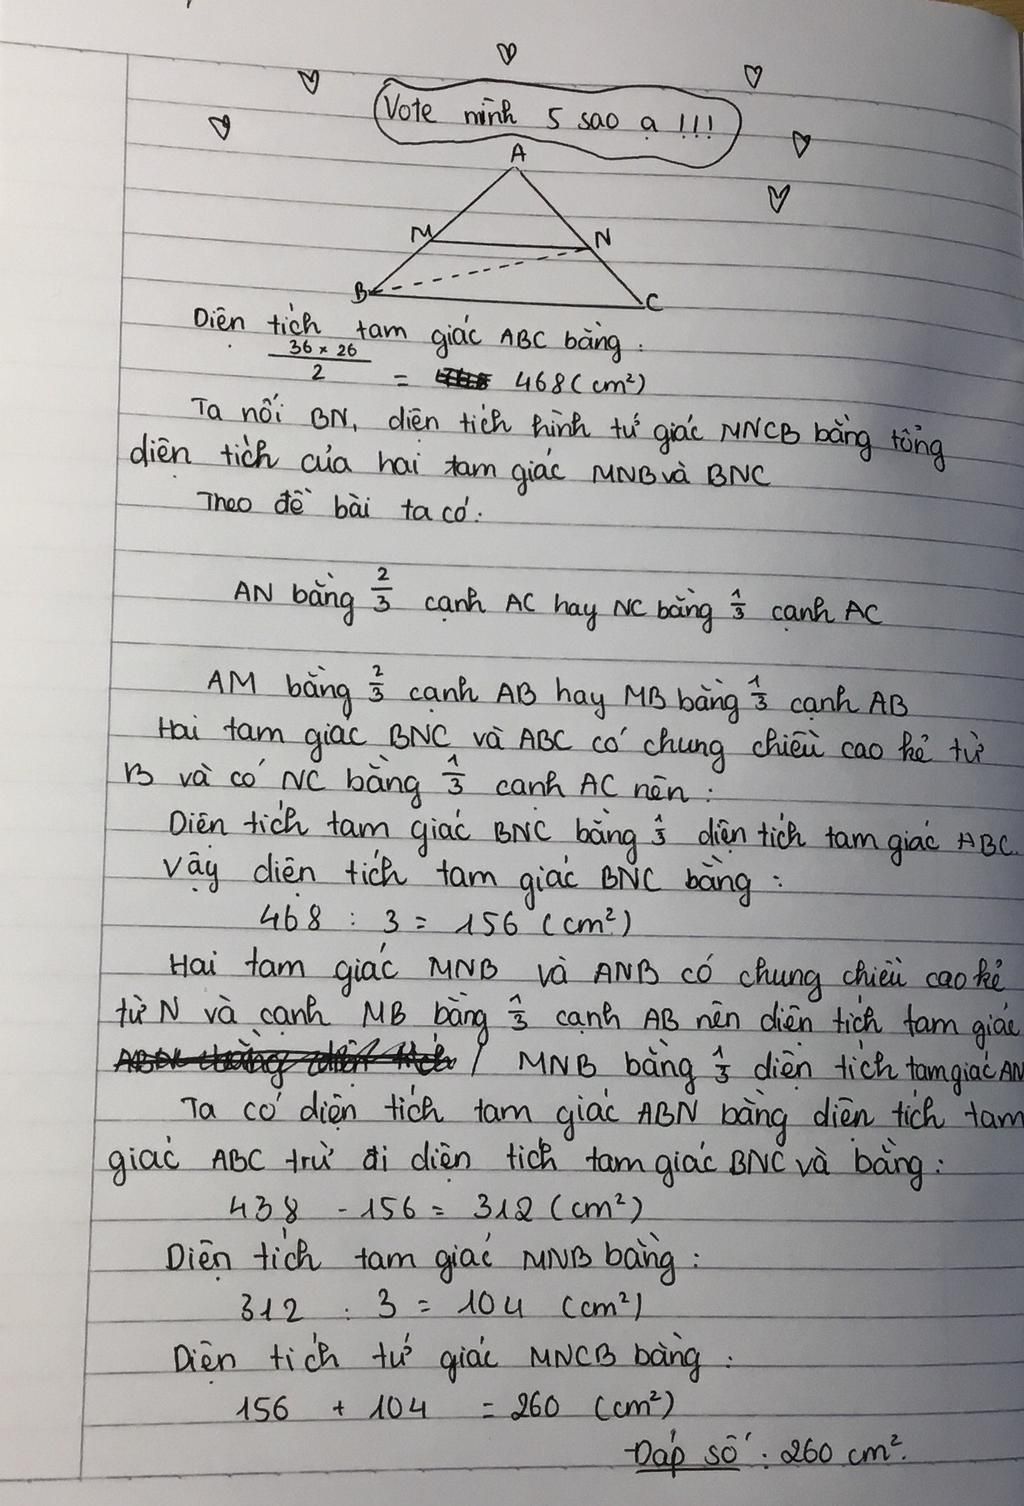 Vote mình 5 sao ạ !!!
A
M N
B C
Diện tích tam giác ABC bằng :
36 x 26
2
= 468 (cm²)
Ta nối BN, diện tích hình tứ giác MNCB bằng tổng
diện tích của hai tam giác MNB và BNC
Theo đề bài ta có :
AN bằng 2/3 cạnh AC hay NC bằng 1/3 cạnh AC
AM bằng 2/3 cạnh AB hay MB bằng 1/3 cạnh AB
Hai tam giác BNC và ABC có chung chiều cao kẻ từ
B và có NC bằng 1/3 cạnh AC nên :
Diện tích tam giác BNC bằng 1/3 diện tích tam giác ABC.
Vậy diện tích tam giác BNC bằng :
468 : 3 = 156 (cm²)
Hai tam giác MNB và ANB có chung chiều cao kẻ
từ N và cạnh MB bằng 1/3 cạnh AB nên diện tích tam giác
MNB bằng 1/3 diện tích tam giác AN
Ta có diện tích tam giác ABN bằng diện tích tam
giác ABC trừ đi diện tích tam giác BNC và bằng :
438 - 156 = 312 (cm²)
Diện tích tam giác MNB bằng :
312 : 3 = 104 (cm²)
Diện tích tứ giác MNCB bằng :
156 + 104 = 260 (cm²)
Đáp số : 260 cm².